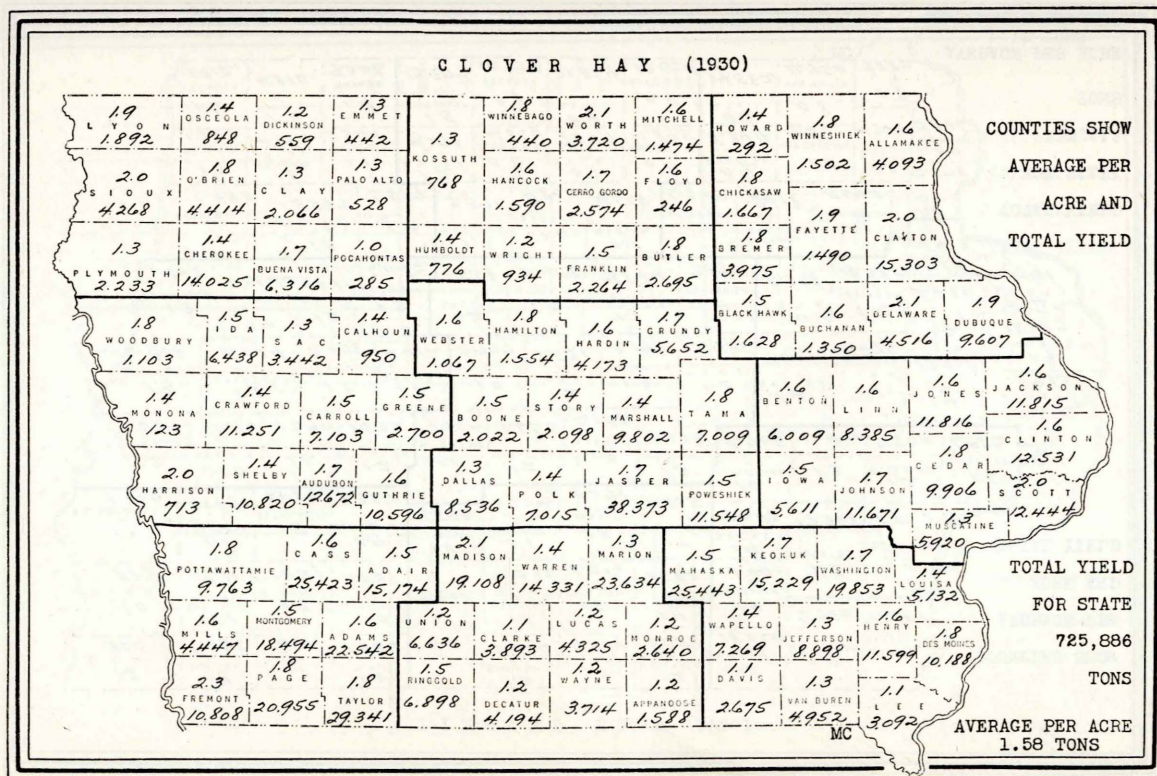 CLOVER HAY (1930)
COUNTIES SHOW
AVERAGE PER
ACRE AND
TOTAL YIELD
1.9
LYON
1.892
1.4
OSCEOLA
848
1.2
DICKINSON
559
1.3
EMMET
442
1.3
KOSSUTH
768
1.8
WINNEBAGO
440
2.1
WORTH
3.720
1.6
MITCHELL
1.474
1.4
HOWARD
292
1.8
WINNESHIEK
1.502
1.6
ALLAMAKEE
4.093
2.0
SIOUX
4.268
1.8
O'BRIEN
4.414
1.3
CLAY
2.066
1.3
PALO ALTO
528
1.6
HANCOCK
1.590
1.7
CERRO GORDO
2.574
1.6
FLOYD
246
1.8
CHICKASAW
1.667
1.9
FAYETTE
1.490
2.0
CLAYTON
15,303
1.3
PLYMOUTH
2.233
1.4
CHEROKEE
14.025
1.7
BUENA VISTA
6,316
1.0
POCAHONTAS
285
1.4
HUMBOLDT
776
1.2
WRIGHT
934
1.5
FRANKLIN
2.264
1.8
BUTLER
2.695
1.8
BREMER
3.975
1.5
BLACK HAWK
1.628
1.6
BUCHANAN
1.350
2.1
DELAWARE
4.516
1.9
DUBUQUE
9.607
1.8
WOODBURY
1.103
1.5
IDA
6.438
1.3
SAC
3.442
1.4
CALHOUN
950
1.6
WEBSTER
1.067
1.8
HAMILTON
1.554
1.6
HARDIN
4.173
1.7
GRUNDY
5,652
1.4
MONONA
123
1.4
CRAWFORD
11.251
1.5
CARROLL
7.103
1.5
GREENE
2.700
1.5
BOONE
2.022
1.4
STORY
2.098
1.4
MARSHALL
9.802
1.8
TAMA
7.009
1.6
BENTON
6.009
1.6
LINN
8.385
1.6
JONES
11.816
1.6
JACKSON
11.815
1.6
CLINTON
12.531
2.0
HARRISON
713
1.4
SHELBY
10.820
1.7
AUDUBON
12.672
1.6
GUTHRIE
10,596
1.3
DALLAS
8.536
1.4
POLK
7.015
1.7
JASPER
38.373
1.5
POWESHIEK
11.548
1.5
IOWA
5,611
1.7
JOHNSON
11.671
1.8
CEDAR
9.906
2.0
SCOTT
2.444
1.3
MUSCATINE
5920
1.8
POTTAWATTAMIE
9.763
1.6
CASS
25,423
1.5
ADAIR
15,174
2.1
MADISON
19.108
1.4
WARREN
14.331
1.3
MARION
23.634
1.5
MAHASKA
25.443
1.7
KEOKUK
15,229
1.7
WASHINGTON
19.853
1.4
LOUISA
5.132
1.6
MILLS
4.447
1.5
MONTGOMERY
18.494
1.6
ADAMS
22.542
1.2
UNION
6.636
1.1
CLARKE
3.893
1.2
LUCAS
4.325
1.2
MONROE
2.640
1.4
WAPELLO
7.269
1.3
JEFFERSON
8.898
1.6
HENRY
11.599
1.8
DES MOINES
10.188
2.3
FREMONT
10.808
1.8
PAGE
20.955
1.8
TAYLOR
29.341
1.5
RINGGOLD
6.898
1.2
DECATUR
4.194
1.2
WAYNE
3.714
1.2
APPANOOSE
1.588
1.1
DAVIS
2.675
1.3
VAN BUREN
4.952
1.1
LEE
3.092
MC
TOTAL YIELD
FOR STATE
725,886
TONS
AVERAGE PER ACRE
1.58 TONS